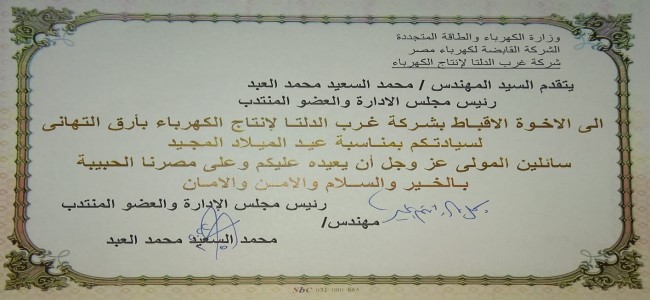 وزارة الكهرباء والطاقة المتجددة
الشركة القابضة لكهرباء مصر
شركة غرب الدلتا لإنتاج الكهرباء
يتقدم السيد المهندس / محمد السعيد محمد العبد
رئيس مجلس الادارة والعضو المنتدب
الى الاخوة الاقباط بشركة غرب الدلتا لإنتاج الكهرباء بأرق التهانى
لسيادتكم بمناسبة عيد الميلاد المجيد
سائلين المولى عز وجل أن يعيده عليكم وعلى مصرنا الحبيبة
بالخير والسلام والامن والامان
رئيس مجلس الإدارة والعضو المنتدب
مهندس/
محمد السعيد محمد العبد